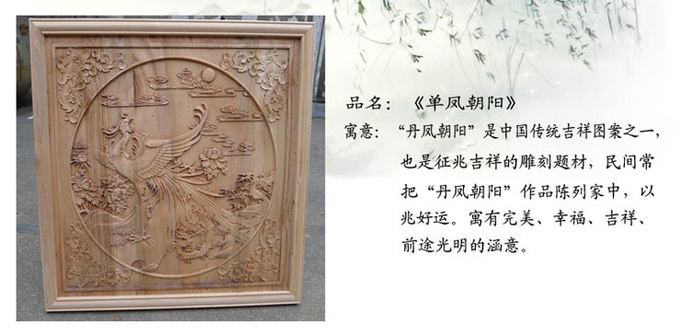 品名：《单凤朝阳》
寓意：“丹凤朝阳”是中国传统吉祥图案之一，
也是征兆吉祥的雕刻题材，民间常
把“丹凤朝阳”作品陈列家中，以
兆好运。寓有完美、幸福、吉祥、
前途光明的涵意。